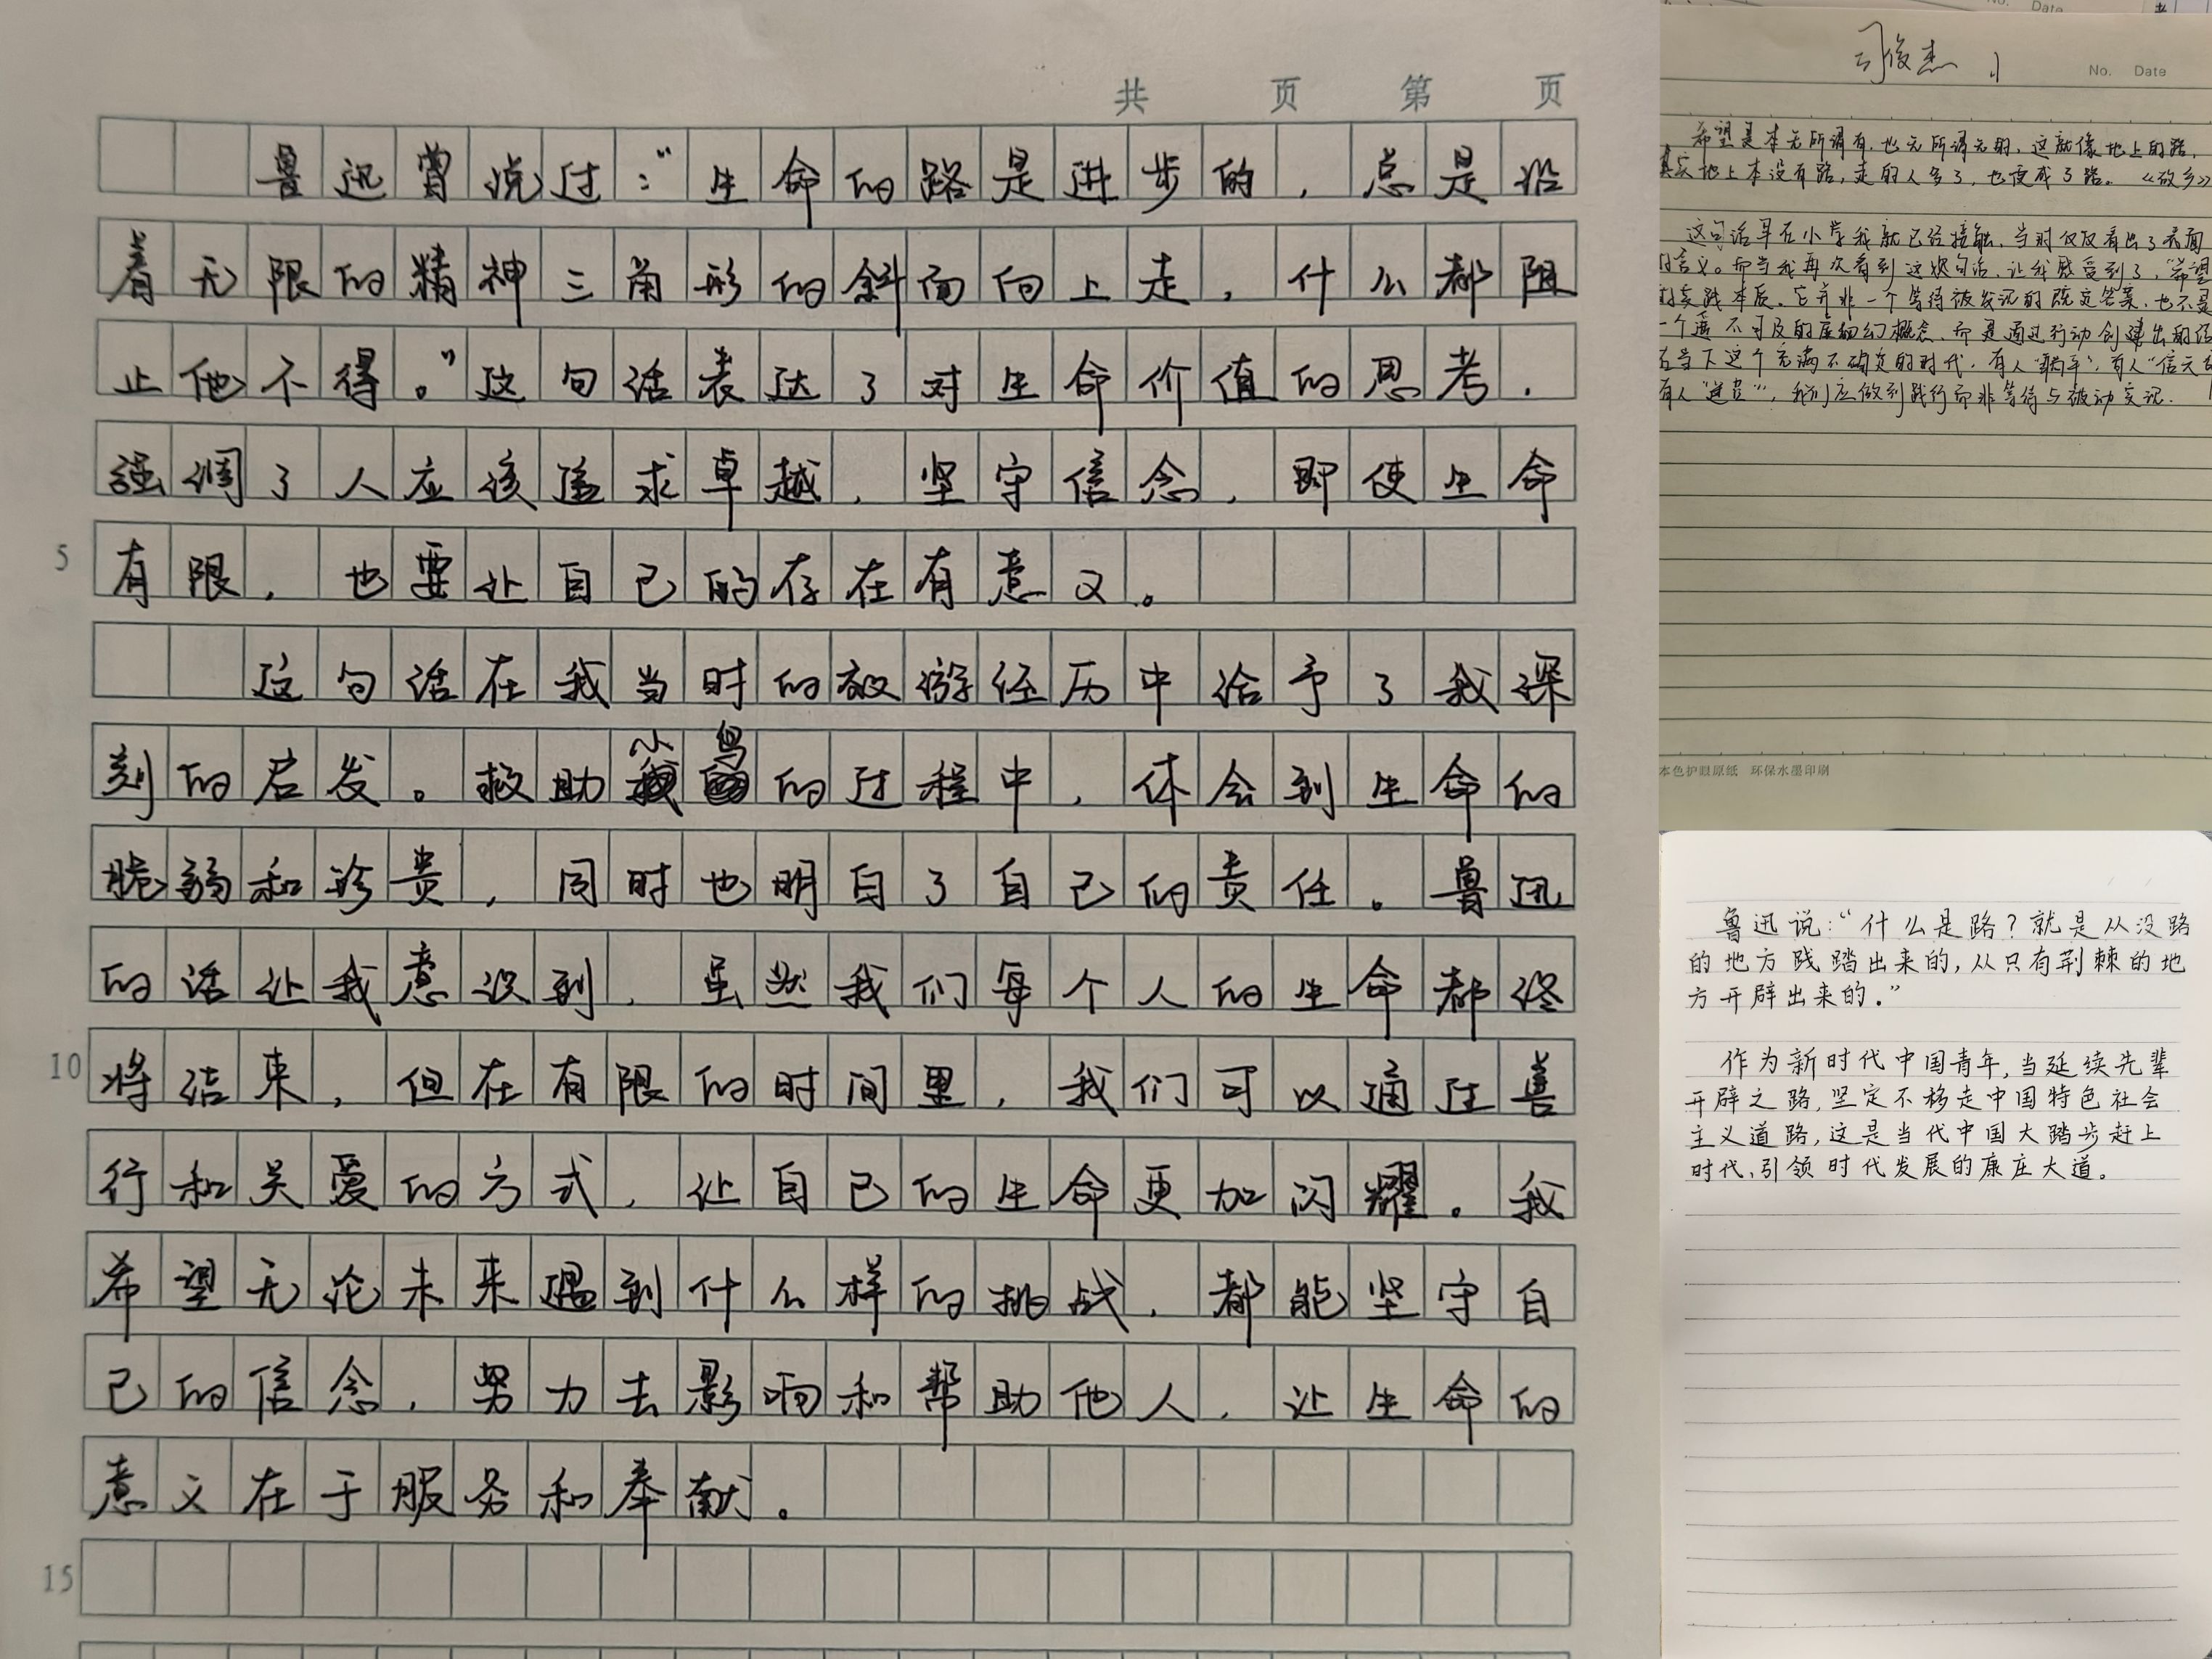 共 页 第 页
鲁迅曾说过:“生命的路是进步的,总是沿
着无限的精神三角形的斜面向上走,什么都阻
止他不得。”这句话表达了对生命价值的思考,
强调了人应该追求卓越,坚守信念,即使生命
5
有限,也要让自己的存在有意义。
这句话在我当时的放游经历中给予了我深
刻的启发。救助小鸟的过程中,体会到生命的
脆弱和珍贵,同时也明白了自己的责任。鲁迅
的话让我意识到,虽然我们每个人的生命都终
10
将结束,但在有限的时间里,我们可以通过善
行和关爱的方式,让自己的生命更加闪耀。我
希望无论未来遇到什么样的挑战,都能坚守自
己的信念,努力去影响和帮助他人,让生命的
意义在于服务和奉献。
15
No. Date
司俊杰
No. Date
希望是本无所谓有,也无所谓无的,这就像地上的路,
其实地上本没有路,走的人多了,也便成了路。《故乡》
这句话早在小学我就已经接触,当时仅仅看出了表面
的含义。而当我再次看到这句话,让我感受到了,“希望
的实践本质。它并非一个等待被发现的既定答案,也不是
一个遥不可及的虚幻概念,而是通过行动创建出的
在当下这个充满不确定的时代,有人“躺平”,有人“信天
有人,我们应做到践行而非等待与被动实现.
本色护眼原纸 环保水墨印刷
鲁迅说:“什么是路?就是从没路
的地方践踏出来的,从只有荆棘的地
方开辟出来的。”
作为新时代中国青年,当延续先辈
开辟之路,坚定不移走中国特色社会
主义道路,这是当代中国大踏步赶上
时代、引领时代发展的康庄大道。